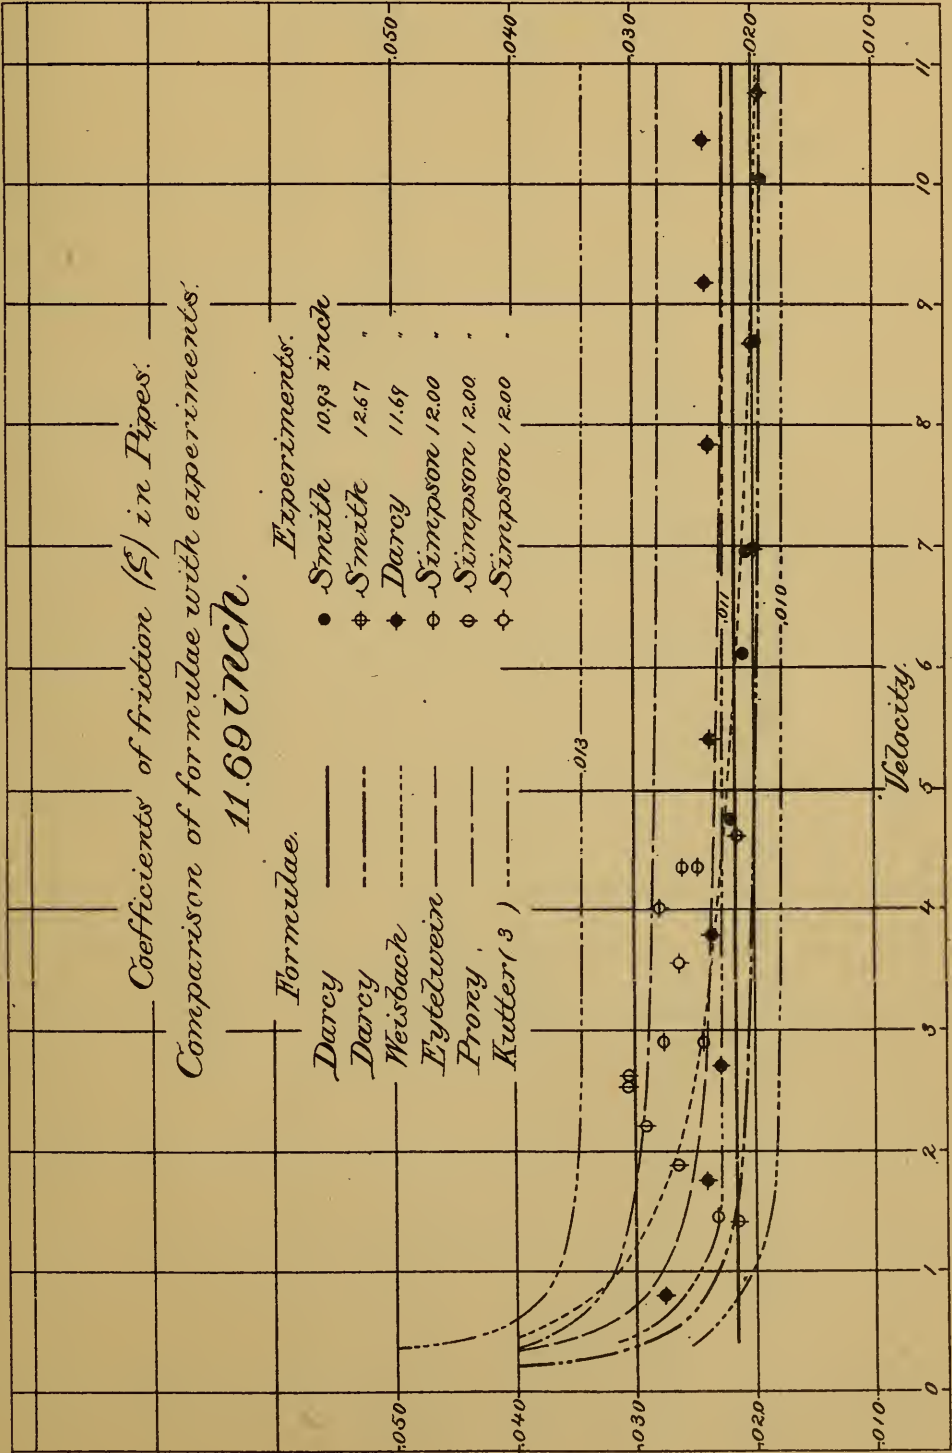 Coefficients of friction (ξ) in Pipes.
Comparison of formulae with experiments.
11.69 inch.
Formulae.
Darcy
Darcy
Weisbach
Eytelwein
Prony
Kutter (3)
Experiments.
Smith 10.93 inch
Smith 12.67 "
Darcy 11.69 "
Simpson 12.00 "
Simpson 12.00 "
Simpson 12.00 "
.050
.040
.030
.020
.010
.050
.040
.030
.020
.010
.013
.011
.010
0
1
2
3
4
5
6
7
8
9
10
11
Velocity.